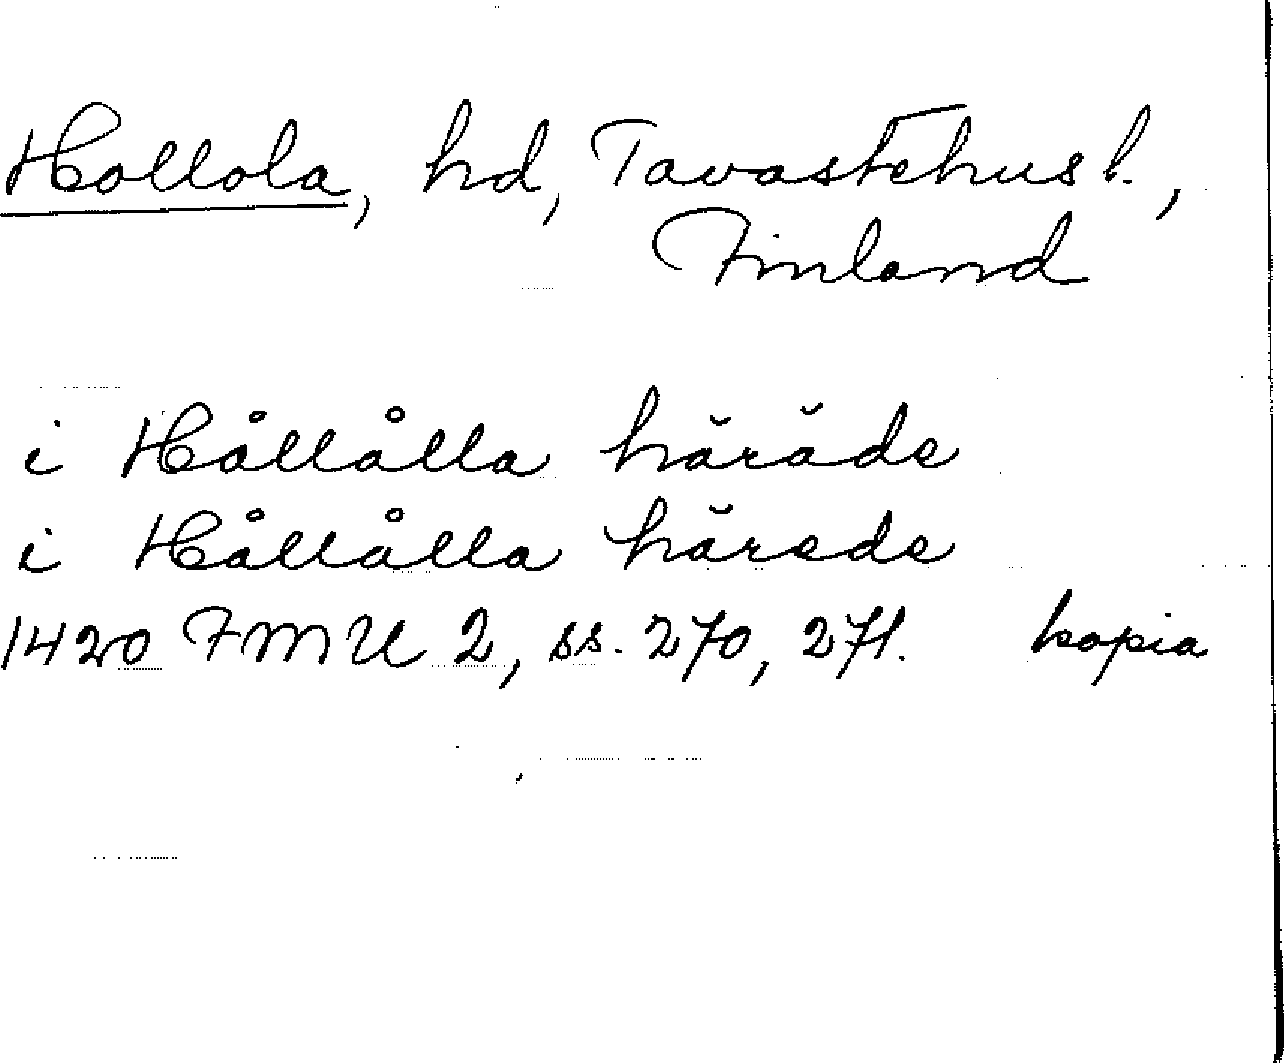 Hollola, hd, Tavastehus l.,
Finland
i Hållålla häräde
i Hållålla härede
1420 FMU 2, ss. 270, 271. kopia